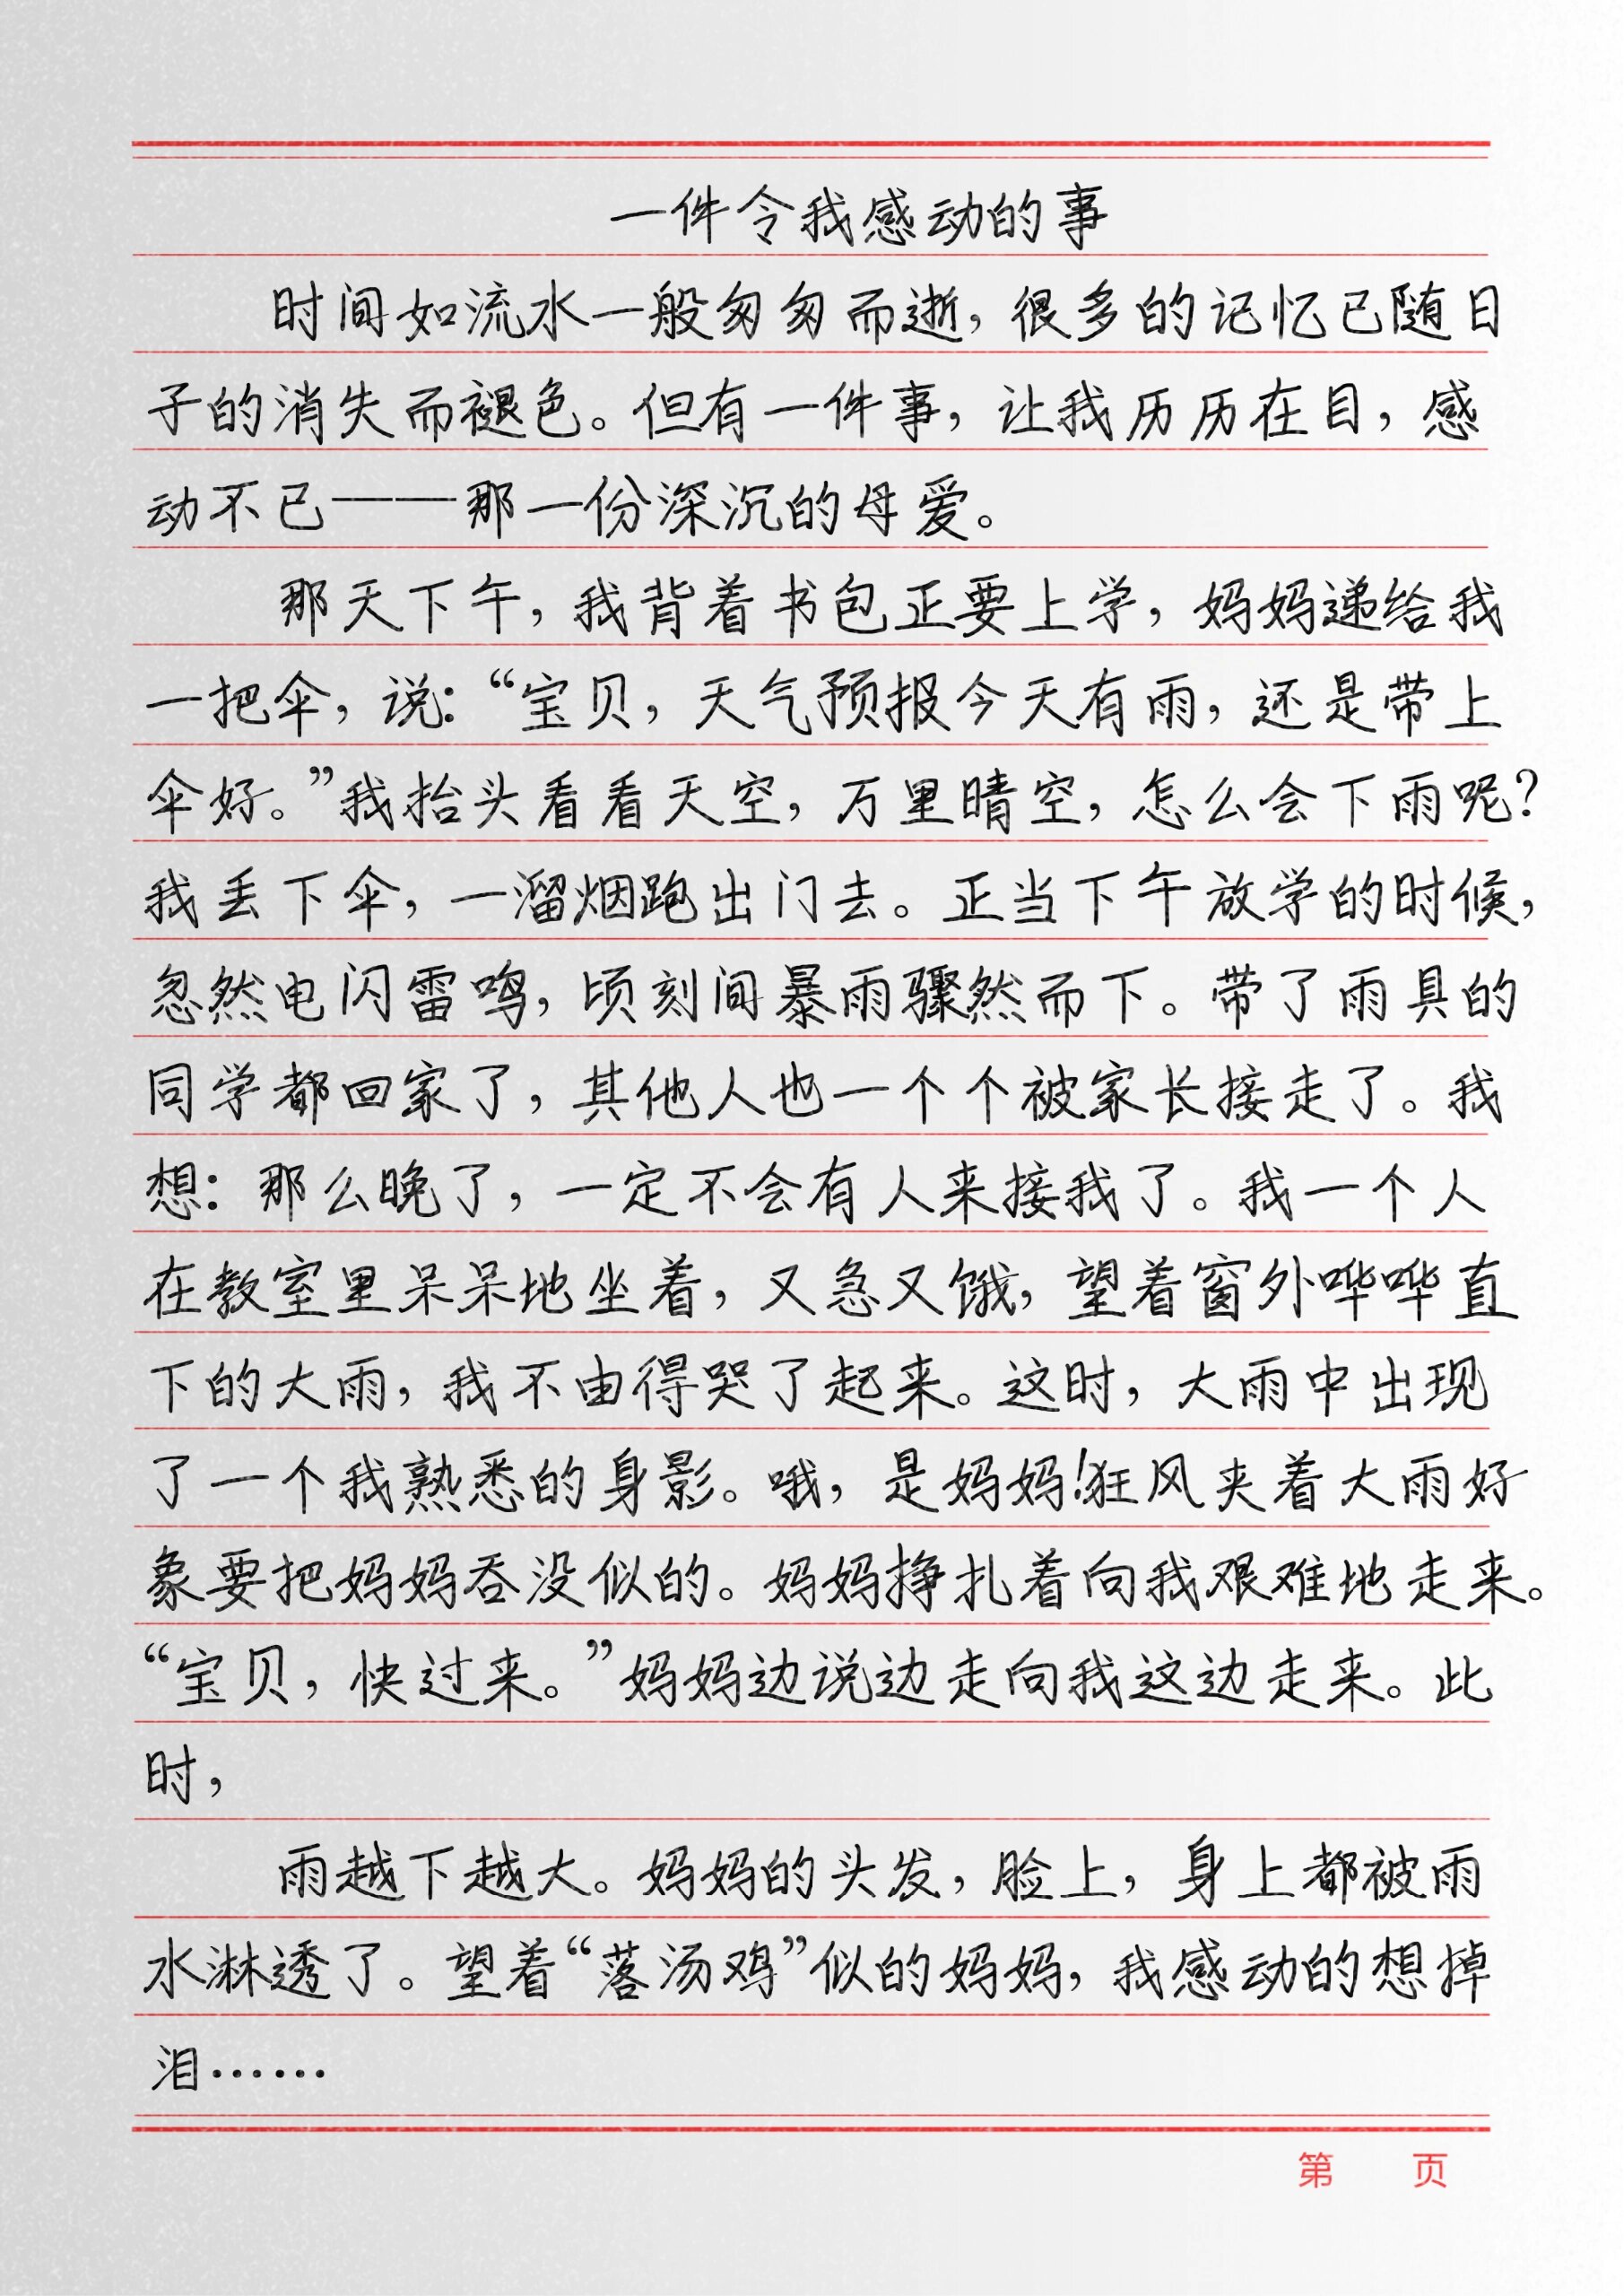 一件令我感动的事
时间如流水一般匆匆而逝，很多的记忆已随日
子的消失而褪色。但有一件事，让我历历在目，感
动不已——那一份深沉的母爱。
那天下午，我背着书包正要上学，妈妈递给我
一把伞，说：“宝贝，天气预报今天有雨，还是带上
伞好。”我抬头看看天空，万里晴空，怎么会下雨呢？
我丢下伞，一溜烟跑出门去。正当下午放学的时候，
忽然电闪雷鸣，顷刻间暴雨骤然而下。带了雨具的
同学都回家了，其他人也一个个被家长接走了。我
想：那么晚了，一定不会有人来接我了。我一个人
在教室里呆呆地坐着，又急又饿，望着窗外哗哗直
下的大雨，我不由得哭了起来。这时，大雨中出现
了一个我熟悉的身影。哦，是妈妈！狂风夹着大雨好
象要把妈妈吞没似的。妈妈挣扎着向我艰难地走来。
“宝贝，快过来。”妈妈边说边走向我这边走来。此
时，
雨越下越大。妈妈的头发，脸上，身上都被雨
水淋透了。望着“落汤鸡”似的妈妈，我感动的想掉
泪……
第 页